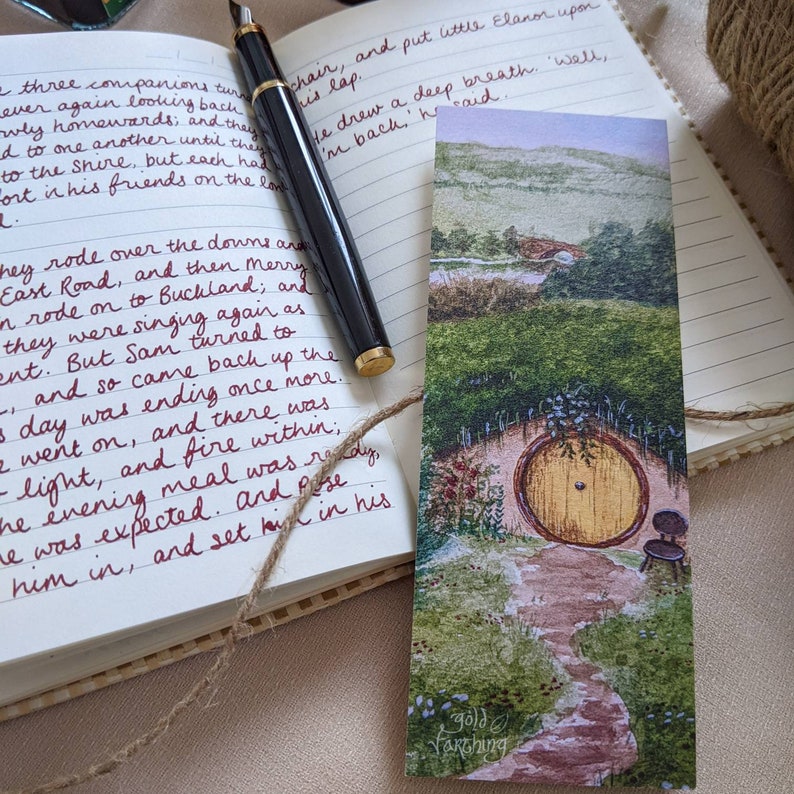 three companions turn
ever again looking back
homewards; and they
to one another until they
to the Shire, but each had
in his friends on the
they rode over the downs and
East Road, and then Merry
rode on to Buckland; and
they were singing again as
But Sam turned to
, and so came back up the
day was ending once more.
went on, and there was
light, and fire within;
the evening meal was ready,
he was expected. And Rose
him in, and set him in his
chair, and put little Elanor upon
his lap.
He drew a deep breath. 'Well,
I'm back,' he said.
gold
farthing